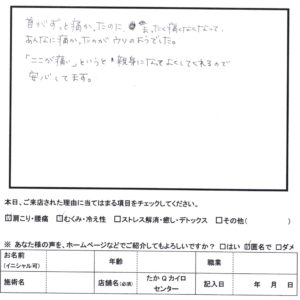 首がずっと痛かったのに、まったく痛くなくなって、
あんなに痛かったのがウソのようでした。
「ここが痛い」というと親身になってよくしてくれるので
安心してます。
本日、ご来店された理由に当てはまる項目をチェックしてください。
☑肩こり・腰痛 ☑むくみ・冷え性 □ストレス解消・癒し・デトックス □その他( )
※ あなた様の声を、ホームページなどでご紹介してもよろしいですか? □はい ☑匿名で □ダメ
お名前 年齢 職業
(イニシャル可)
施術名 店舗名(必須) たかQカイロ 記入日 年 月 日
センター